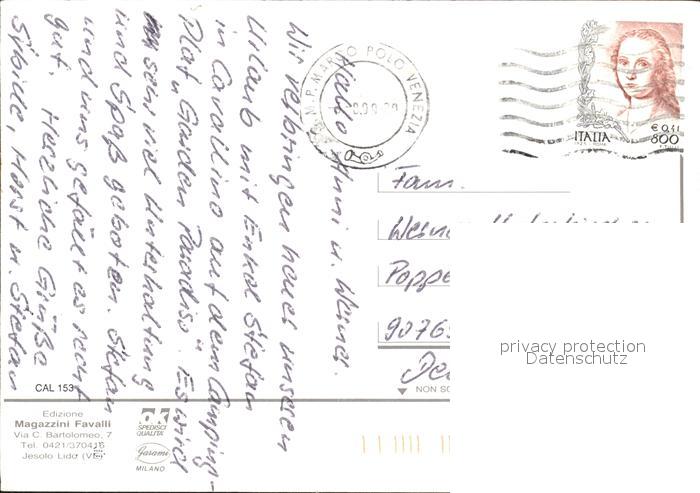 Hallo Anni u. Werner.
Wir verbringen heuer unseren
Urlaub mit Enkel Stefan
in Cavallino auf dem Camping-
Platz "Garden Paradiso". Es wird
sehr viel Unterhaltung
und Spaß geboten. Stefan
und uns gefällt es recht
gut. Herzliche Grüße
Horst u. Stefan
A.M.P. MARCO POLO VENEZIA
ITALIA
€ 0,41
800
Fam.
Poppe
9076
CAL 153
NON SC
Edizione
Magazzini Favalli
Via C. Bartolomeo, 7
Tel. 0421/370416
Jesolo Lido (VE)
ok
SPEDISCI
QUALITA'
Garami
MILANO
privacy protection
Datenschutz